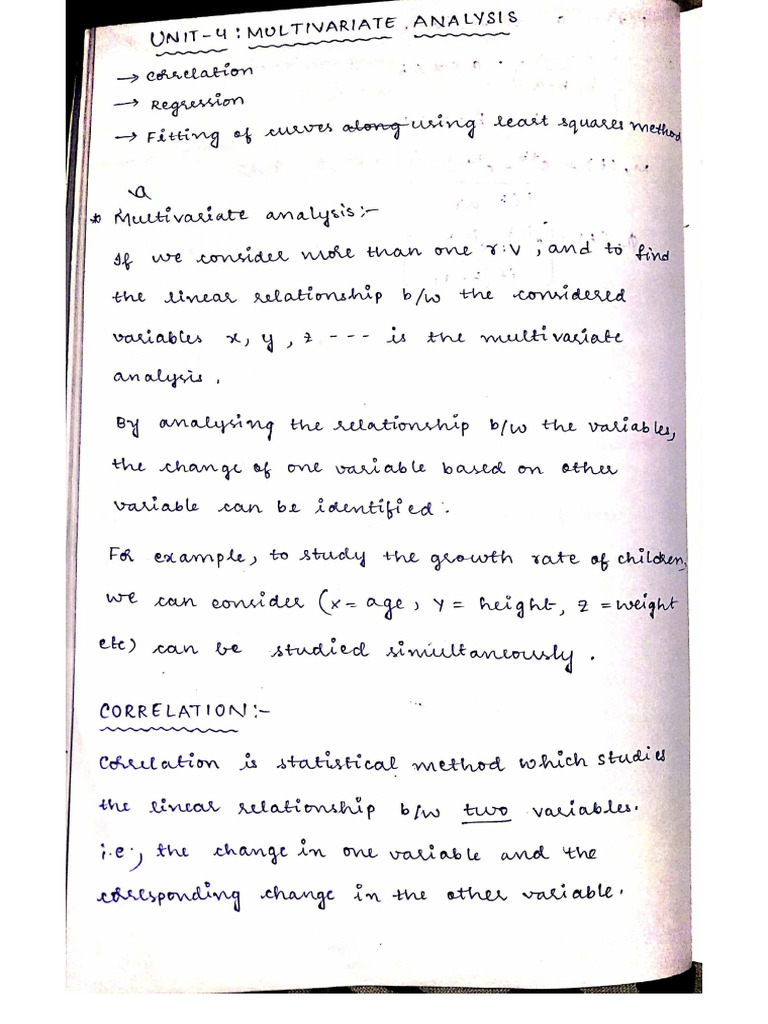 UNIT-4: MULTIVARIATE ANALYSIS
→ Correlation
→ Regression
→ Fitting of curves along using least squares method
a
* Multivariate analysis:-
If we consider more than one r.v, and to find
the linear relationship b/w the considered
variables x, y, z --- is the multivariate
analysis.
By analysing the relationship b/w the variables,
the change of one variable based on other
variable can be identified.
For example, to study the growth rate of children,
we can consider (x = age, y = height, z = weight
etc) can be studied simultaneously.
CORRELATION:-
Correlation is statistical method which studies
the linear relationship b/w two variables.
i.e., the change in one variable and the
corresponding change in the other variable.